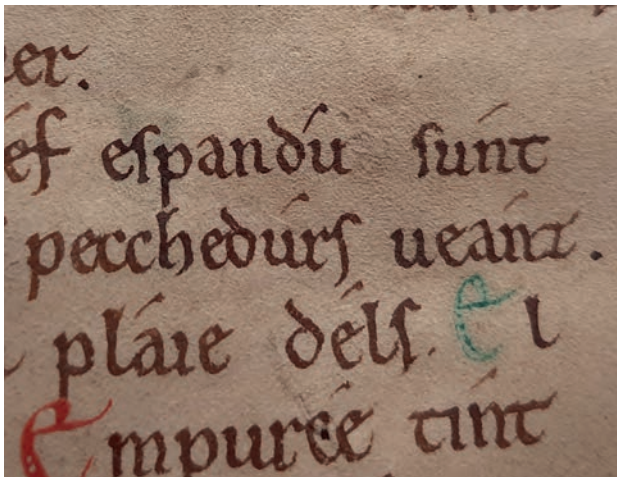 er.
ef espandu sunt
pecchedúrs ueánt.
pláie déls. El
Empureé tint